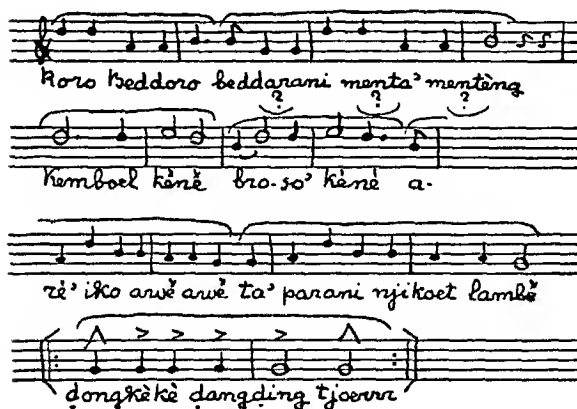 Koro Keddoro beddarani menta' mentèng
? ? ?
Kemboel kènĕ bro-so' kènè a-
rè' iko awĕ awĕ ta' parani njikoet lambĕ
ḍongkèkè ḍangḍing tjoerrr